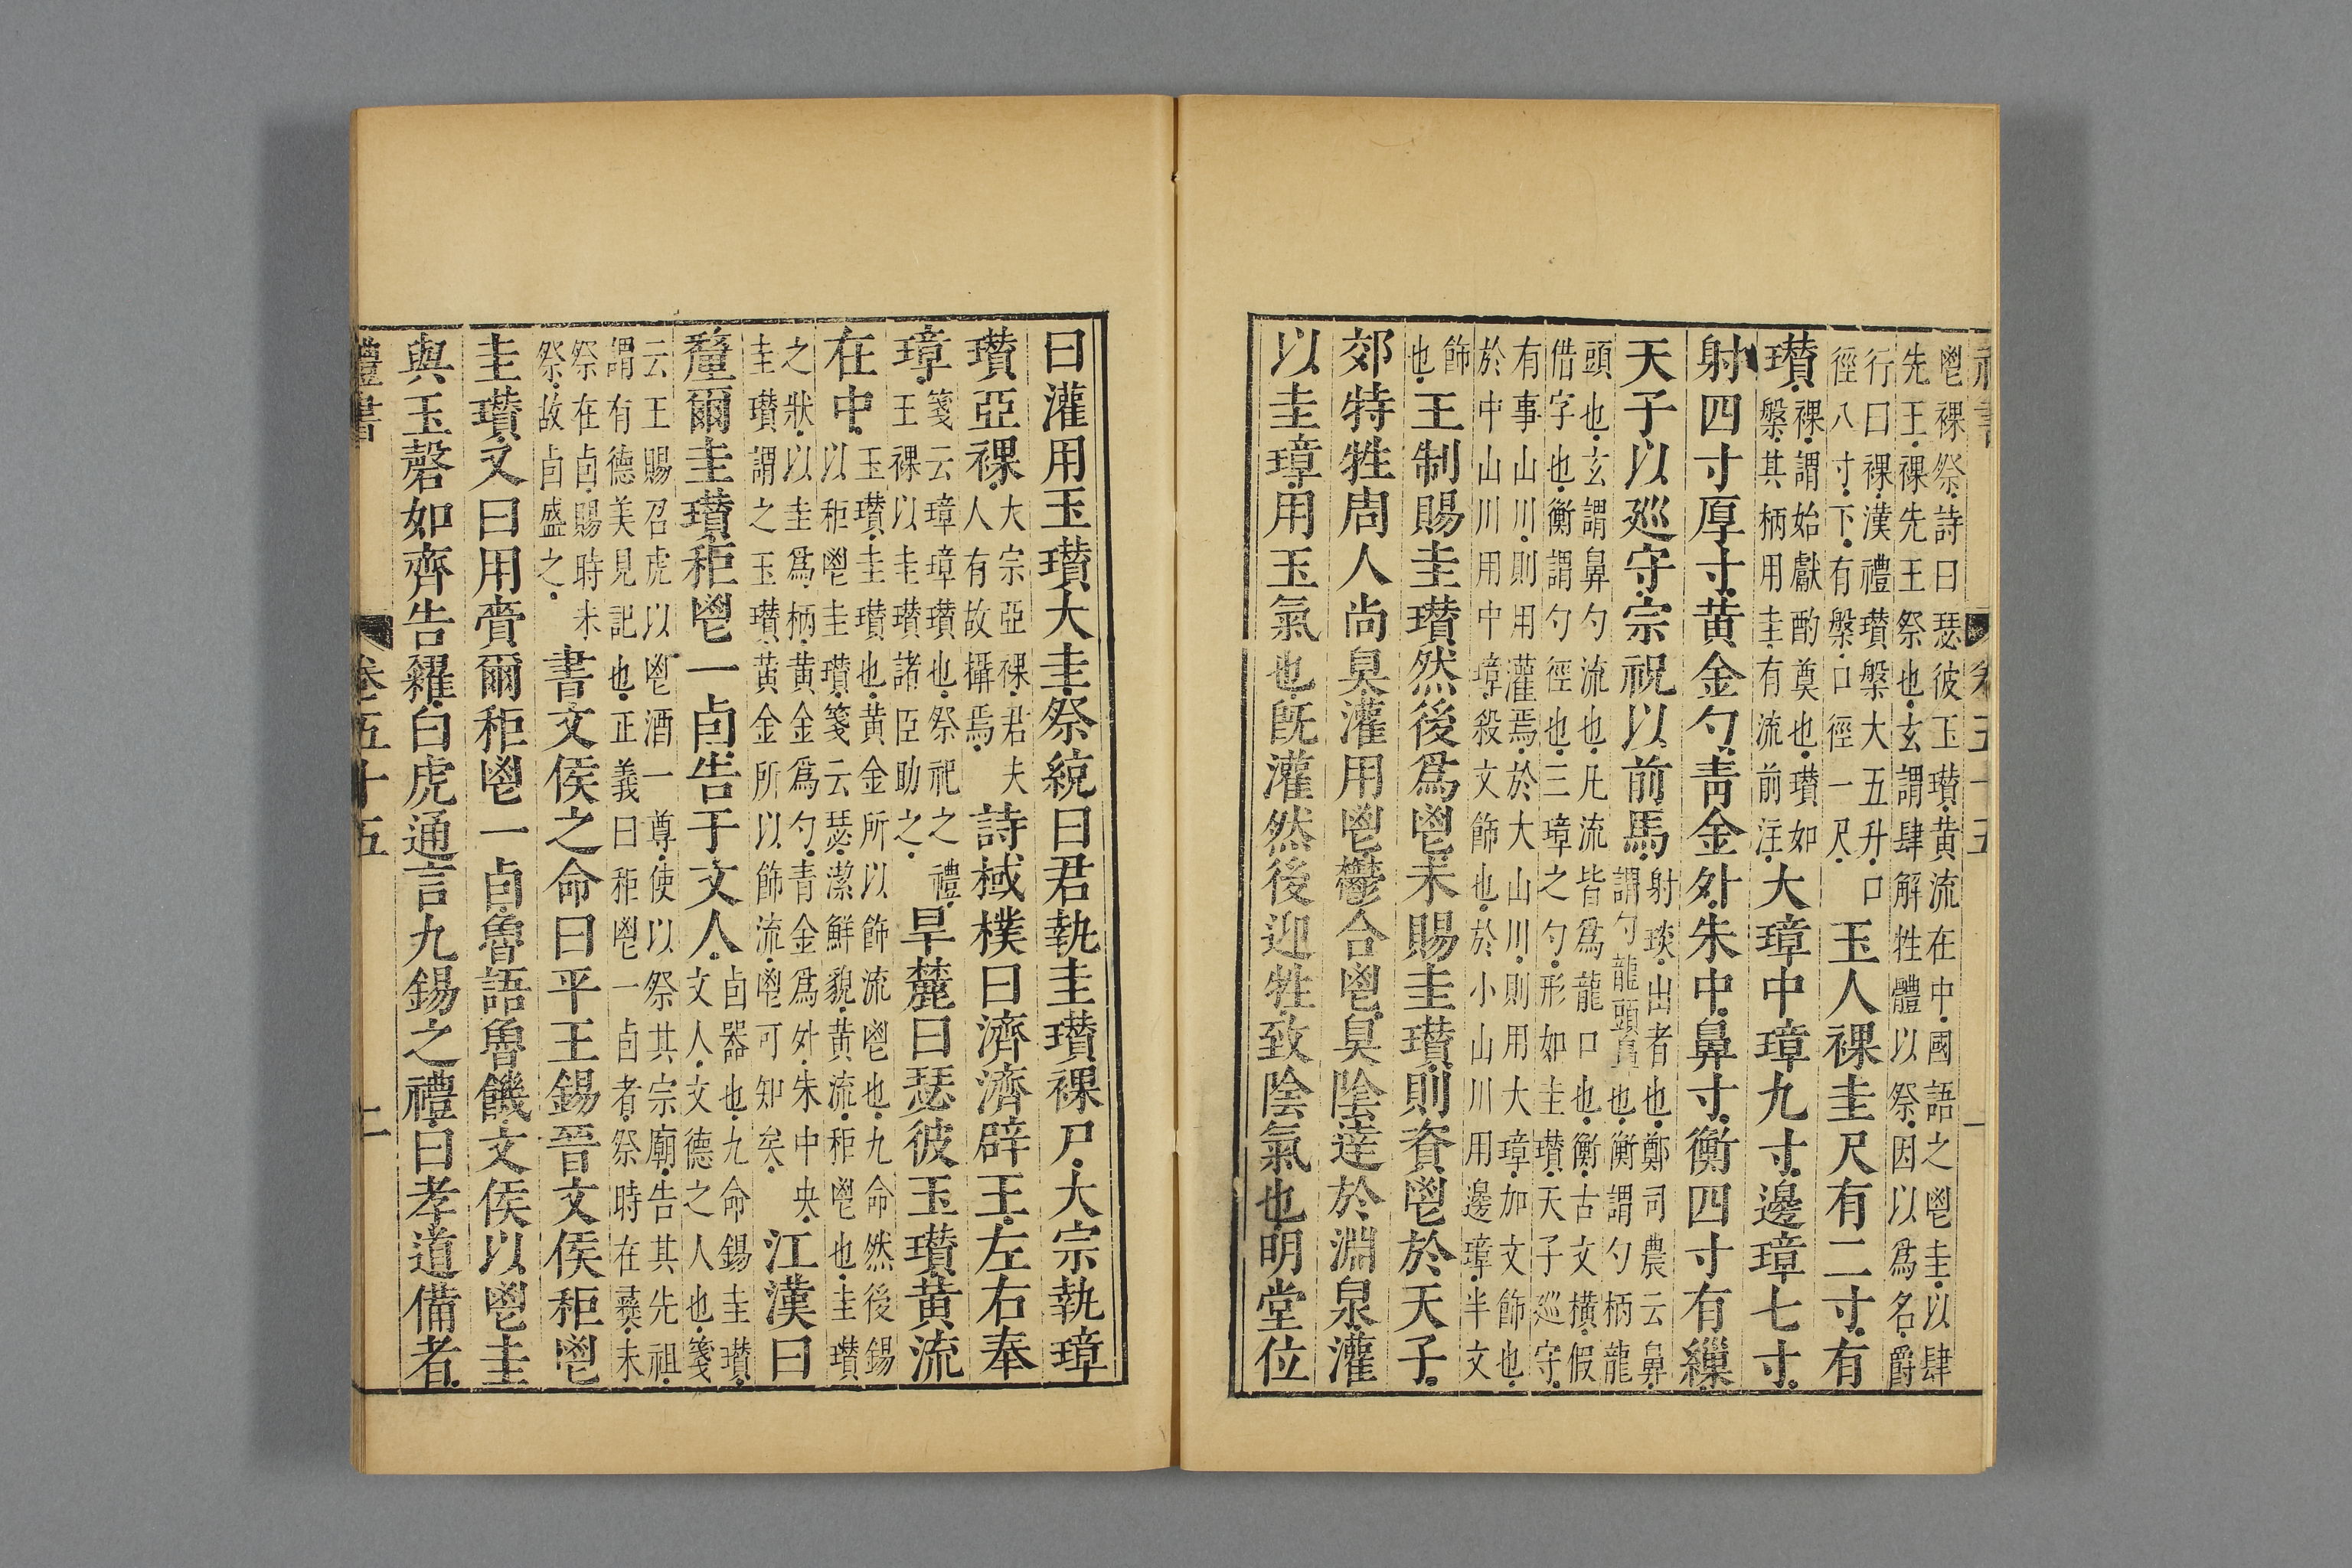 鬯祼祭詩曰瑟彼玉瓉黄流在中國語之鬯圭以肆
先王祼先王祭也玄謂肆解牲體以祭因以爲名爵
行曰祼漢禮瓉槃大五升口徑八寸下有槃口徑一尺玉人祼圭尺有二寸有
瓉祼謂始獻酌奠也瓉如槃其柄用圭有流前注大璋中璋九寸邊璋七寸
射四寸厚寸黄金勺青金外朱中鼻寸衡四寸有繅
天子以廵守宗祝以前馬射琰出者也鄭司農云鼻謂勺龍頭鼻也衡謂勺柄龍
頭也玄謂鼻勺流也凡流皆爲龍口也衡古文橫假
借字也衡謂勺徑也三璋之勺形如圭瓉天子廵守
有事山川則用灌焉於大山川則用大璋加文飾也
於中山川用中璋殺文飾也於小山川用邊璋半文
飾也王制賜圭瓉然後爲鬯未賜圭瓉則資鬯於天子
郊特牲周人尚臭灌用鬯鬱合鬯臭隂達於淵泉灌
以圭璋用玉氣也旣灌然後迎牲致隂氣也明堂位
曰灌用玉瓉大圭祭統曰君執圭瓉祼尸大宗執璋
瓉亞祼大宗亞祼君夫人有故攝焉詩棫樸曰濟濟辟王左右奉
璋箋云璋璋瓉也祭祀之禮王祼以圭瓉諸臣助之旱麓曰瑟彼玉瓉黄流
在中玉瓉圭瓉也黄金所以飾流鬯也九命然後錫以秬鬯圭瓉箋云瑟潔鮮貌黄流秬鬯也圭瓉
之狀以圭爲柄黄金爲勺青金爲外朱中央圭瓉謂之玉瓉黄金所以飾流鬯可知矣江漢曰
釐爾圭瓉秬鬯一卣告于文人卣器也九命錫圭瓉文人文德之人也箋
云王賜召虎以鬯酒一尊使以祭其宗廟告其先祖
謂有德美見記也正義曰秬鬯一卣者祭時在彛未
祭在卣賜時未祭故卣盛之書文侯之命曰平王錫晉文侯秬鬯
圭瓉又曰用賚爾秬鬯一卣魯語魯饑文侯以鬯圭
與玉磬如齊告糴白虎通言九錫之禮曰孝道備者
禮書 卷五十五